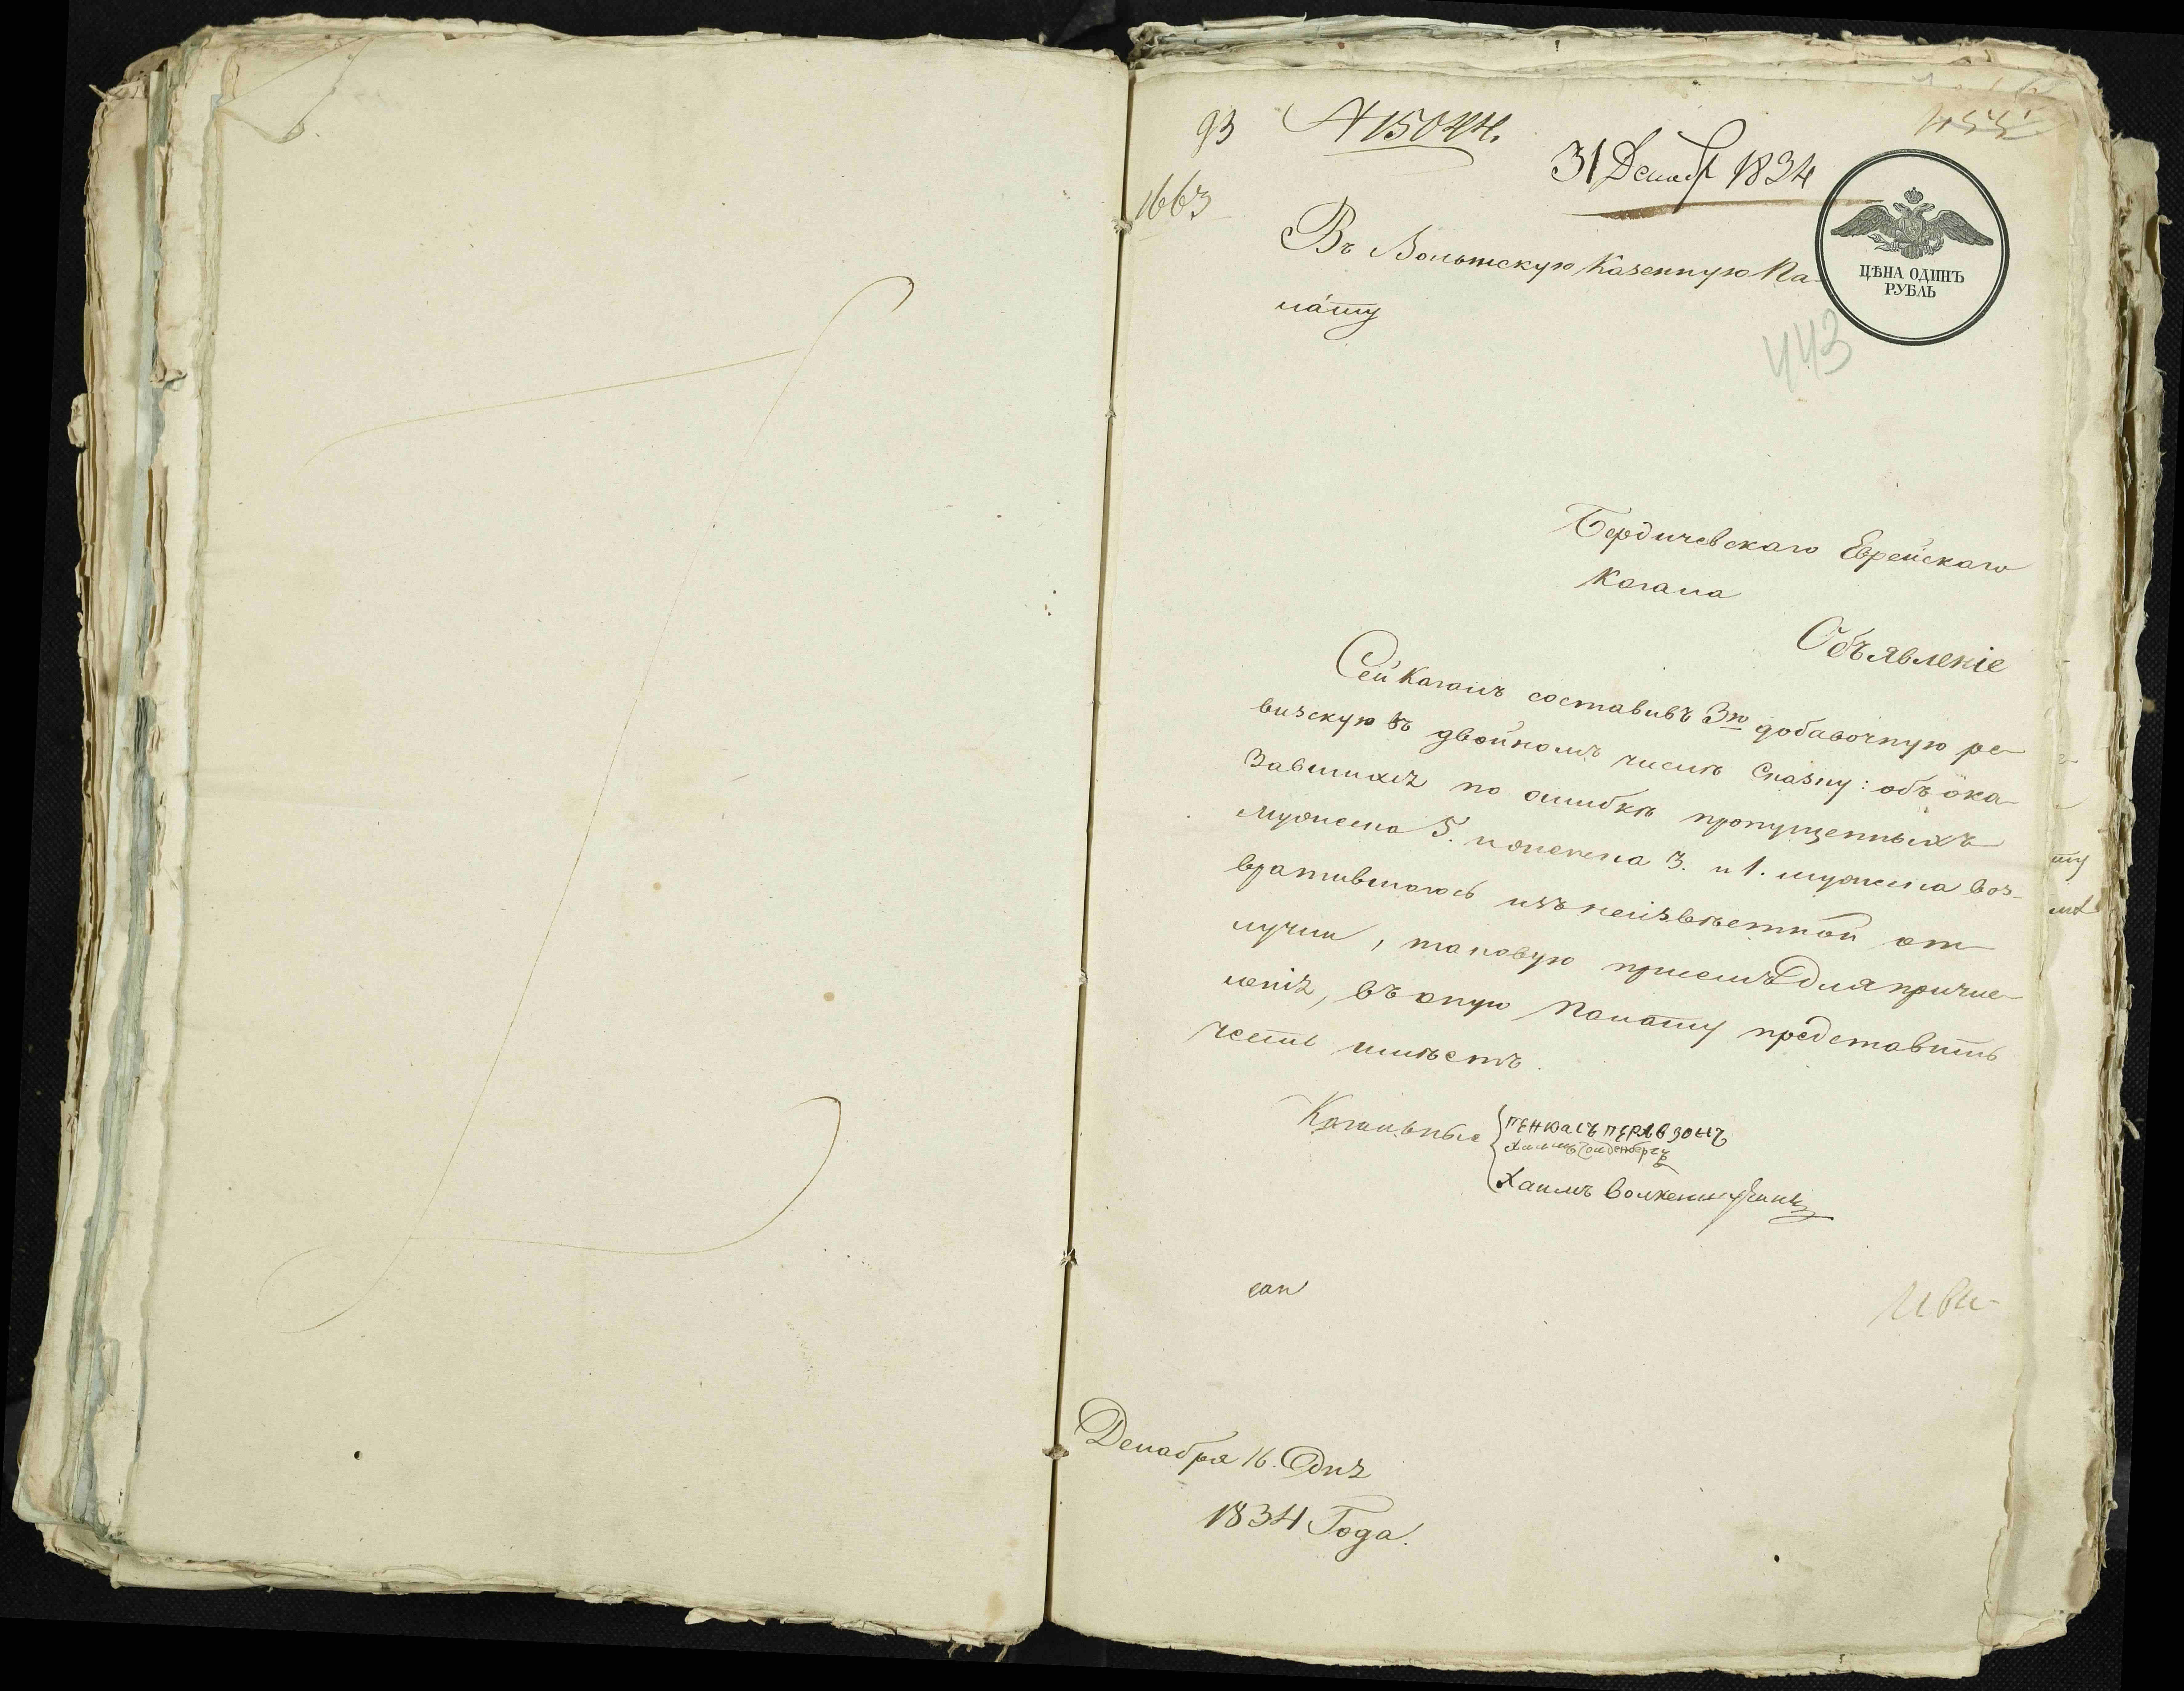 93 № 15044.
455
31 Декабр 1834
1663
ЦѢНА ОДИНЪ
РУБЛЬ
Въ Волынскую Казенную Па-
лату
443
Бердичевскаго Еврейскаго
Кагала
Объявленіе
Сей Кагалъ составивъ 3ю добавочную ре-
визскую въ двойномъ числѣ Сказку: объ ока-
завшихся по ошибкѣ пропущенныхъ
мужеска 5. и женска 3. и 1. мужеска воз-
вратившагось изъ неизвѣстной от-
лучки, таковую присемъ для причис-
ленія, въ оную Палату представить
честь имѣетъ.
Кагальные
ПЕНКАСЪ ПЕРЛЬЗОНЪ
Голденбергъ
Хаимъ Волкенштейнъ
Декабря 16. Дня
1834 Года.